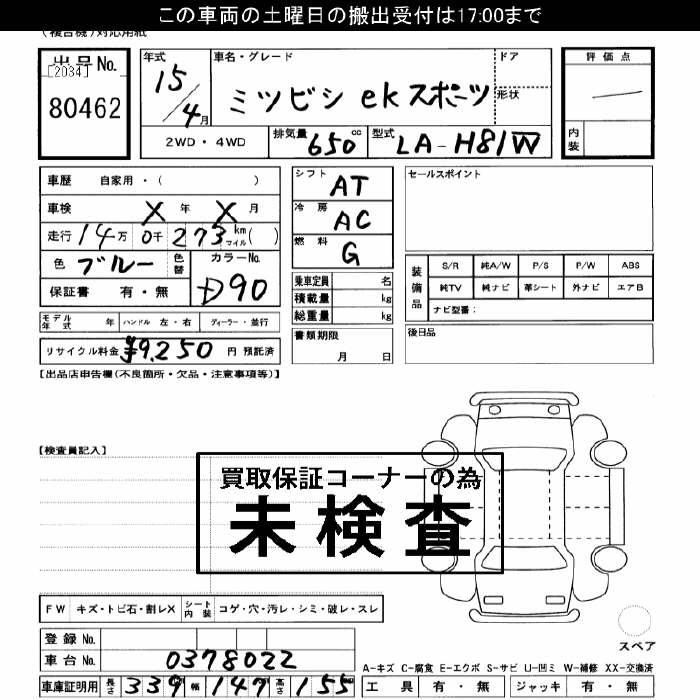 この車両の土曜日の搬出受付は17:00まで
(複合機)対応用紙
出品No.
[2034]
80462
年式
15/4月
車名・グレード
ミツビシ ekスポーツ
ドア
形状
評価点
内装
2WD・4WD
排気量 650 cc
型式 LA-H81W
車歴 自家用・( )
車検 X 年 X 月
走行 14万 0千 273 km マイル ( )
色 ブルー
色替
カラーNo.
D90
保証書 有・無
シフト AT
冷房 AC
燃料 G
乗車定員 名
積載量 kg
総重量 kg
書類期限
月 日
セールスポイント
装備品
S/R 純A/W P/S P/W ABS
純TV 純ナビ 革シート 外ナビ エアB
ナビ型番:
後日品
モデル年式 年 ハンドル 左・右 ディーラー・並行
リサイクル料金 ¥9,250 円 預託済
【出品店申告欄(不良箇所・欠品・注意事項等)】
【検査員記入】
買取保証コーナーの為
未検査
FW キズ・トビ石・割レX シート内装 コゲ・穴・汚レ・シミ・破レ・スレ
登録 No.
車台 No. 0378022
車庫証明用 長さ 339 幅 147 高さ 155
スペア
A-キズ C-腐食 E-エクボ S-サビ U-凹ミ W-補修 XX-交換済
工具 有・無 ジャッキ 有・無